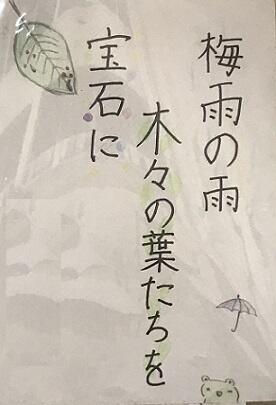 梅雨の雨
木々の葉たちを
宝石に